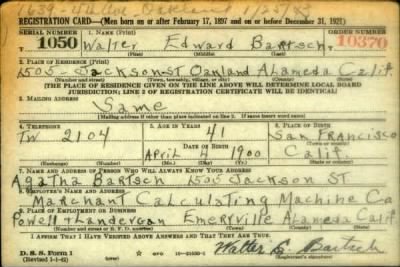 REGISTRATION CARD—(Men born on or after February 17, 1897 and on or before December 31, 1921)
SERIAL NUMBER 1. NAME (Print) ORDER NUMBER
1050 Walter Edward Bartsch 10370
(First) (Middle) (Last)
2. PLACE OF RESIDENCE (Print)
1505 Jackson St Oakland Alameda Calif
(Number and street) (Town, township, village, or city) (County) (State)
[THE PLACE OF RESIDENCE GIVEN ON THE LINE ABOVE WILL DETERMINE LOCAL BOARD
JURISDICTION; LINE 2 OF REGISTRATION CERTIFICATE WILL BE IDENTICAL]
3. MAILING ADDRESS
Same
[Mailing address if other than place indicated on line 2. If same insert word same]
4. TELEPHONE 5. AGE IN YEARS 6. PLACE OF BIRTH
41
TW 2104 DATE OF BIRTH San Francisco
(Town or county)
April 4 1900 Cali
(Exchange) (Number) (Mo.) (Day) (Yr.) (State or country)
7. NAME AND ADDRESS OF PERSON WHO WILL ALWAYS KNOW YOUR ADDRESS
Agatha Bartsch 1505 Jackson ST
8. EMPLOYER'S NAME AND ADDRESS
Marchant Calculating Machine Co
9. PLACE OF EMPLOYMENT OR BUSINESS
Powell & Landergan Emeryville Alameda Calif
(Number and street or R. F. D. number) (Town) (County) (State)
I AFFIRM THAT I HAVE VERIFIED ABOVE ANSWERS AND THAT THEY ARE TRUE.
D. S. S. Form 1
(Revised 1-1-42) (over) 16—21630-1
Walter E. Bartsch